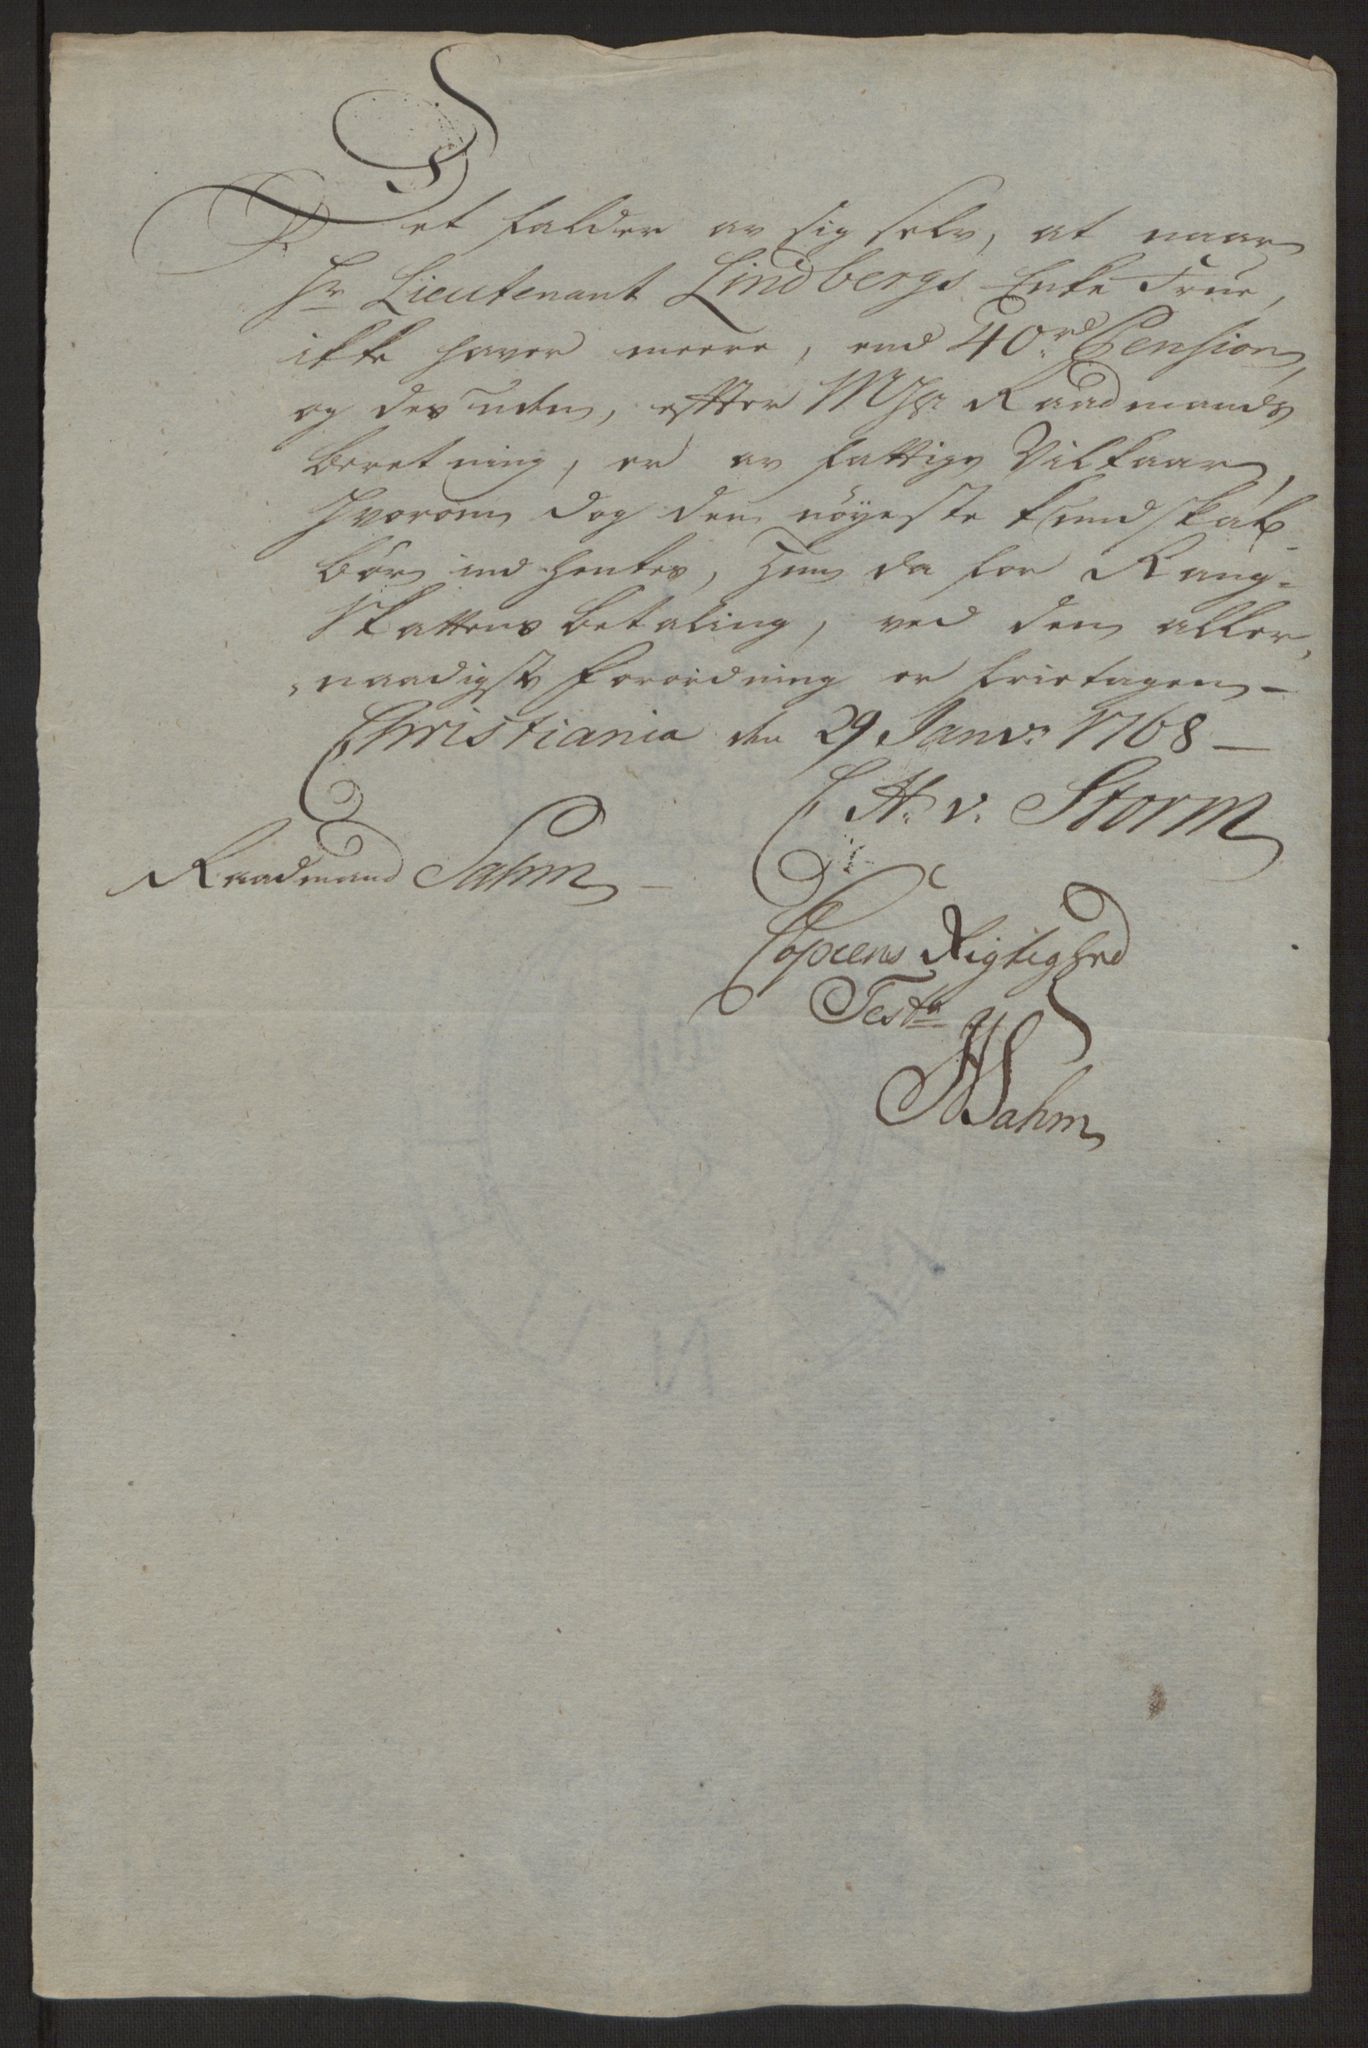 Det falder av sig selv, at naar
Hr Lieutenant Lindbergs Enke Frue,
ikke haver meere, end 40 rd Pension,
og des uden, efter Raadmands
beretning, er av fattige Vilkaar,
hvorom dog den nöyeste kundskab
bör ind hentes, Hun da for Rang-
Skattens betaling, ved den aller-
naadigste forordning er frietagen -
Christiania den 29 Janv: 1768 -
C H: v: Storm
Raadmand Sahm -
Copiens Rigtighed
Test:
Sahm